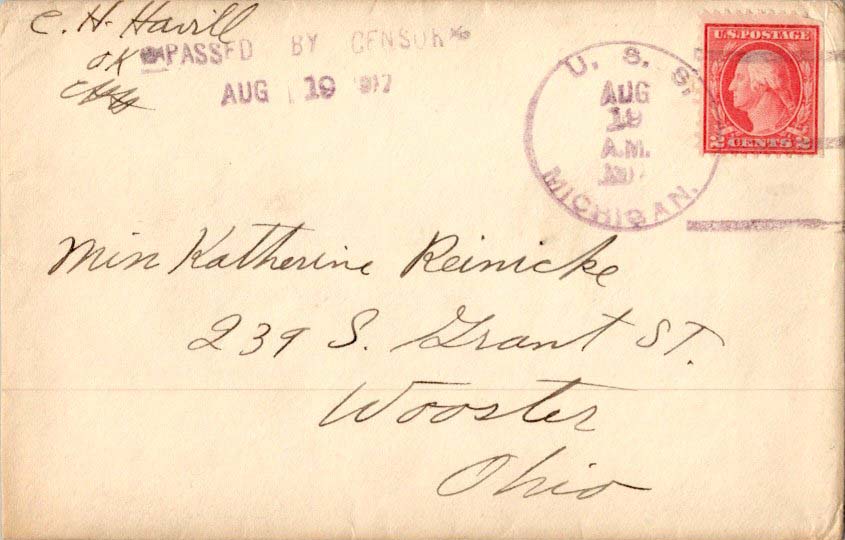 C. H. Havill
OK
PASSED BY CENSOR
AUG 19 1917
U. S. S. MICHIGAN.
AUG
19
A.M.
U.S. POSTAGE
2 CENTS 2
Miss Katherine Reinicke
239 S. Grant ST.
Wooster
Ohio